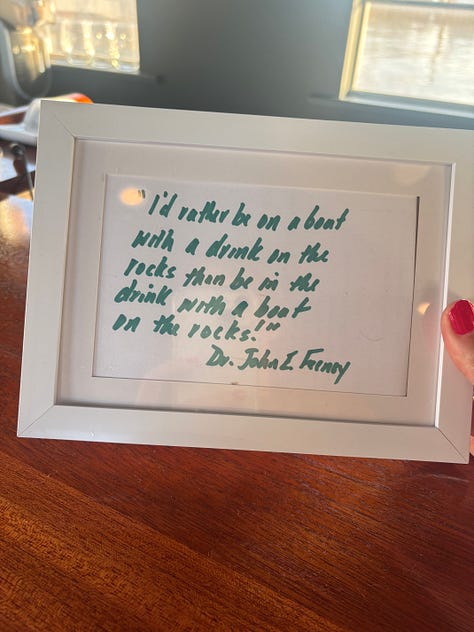 "I'd rather be on a boat
with a drink on the
rocks than be in the
drink with a boat
on the rocks!"
Dr. John L Feeney